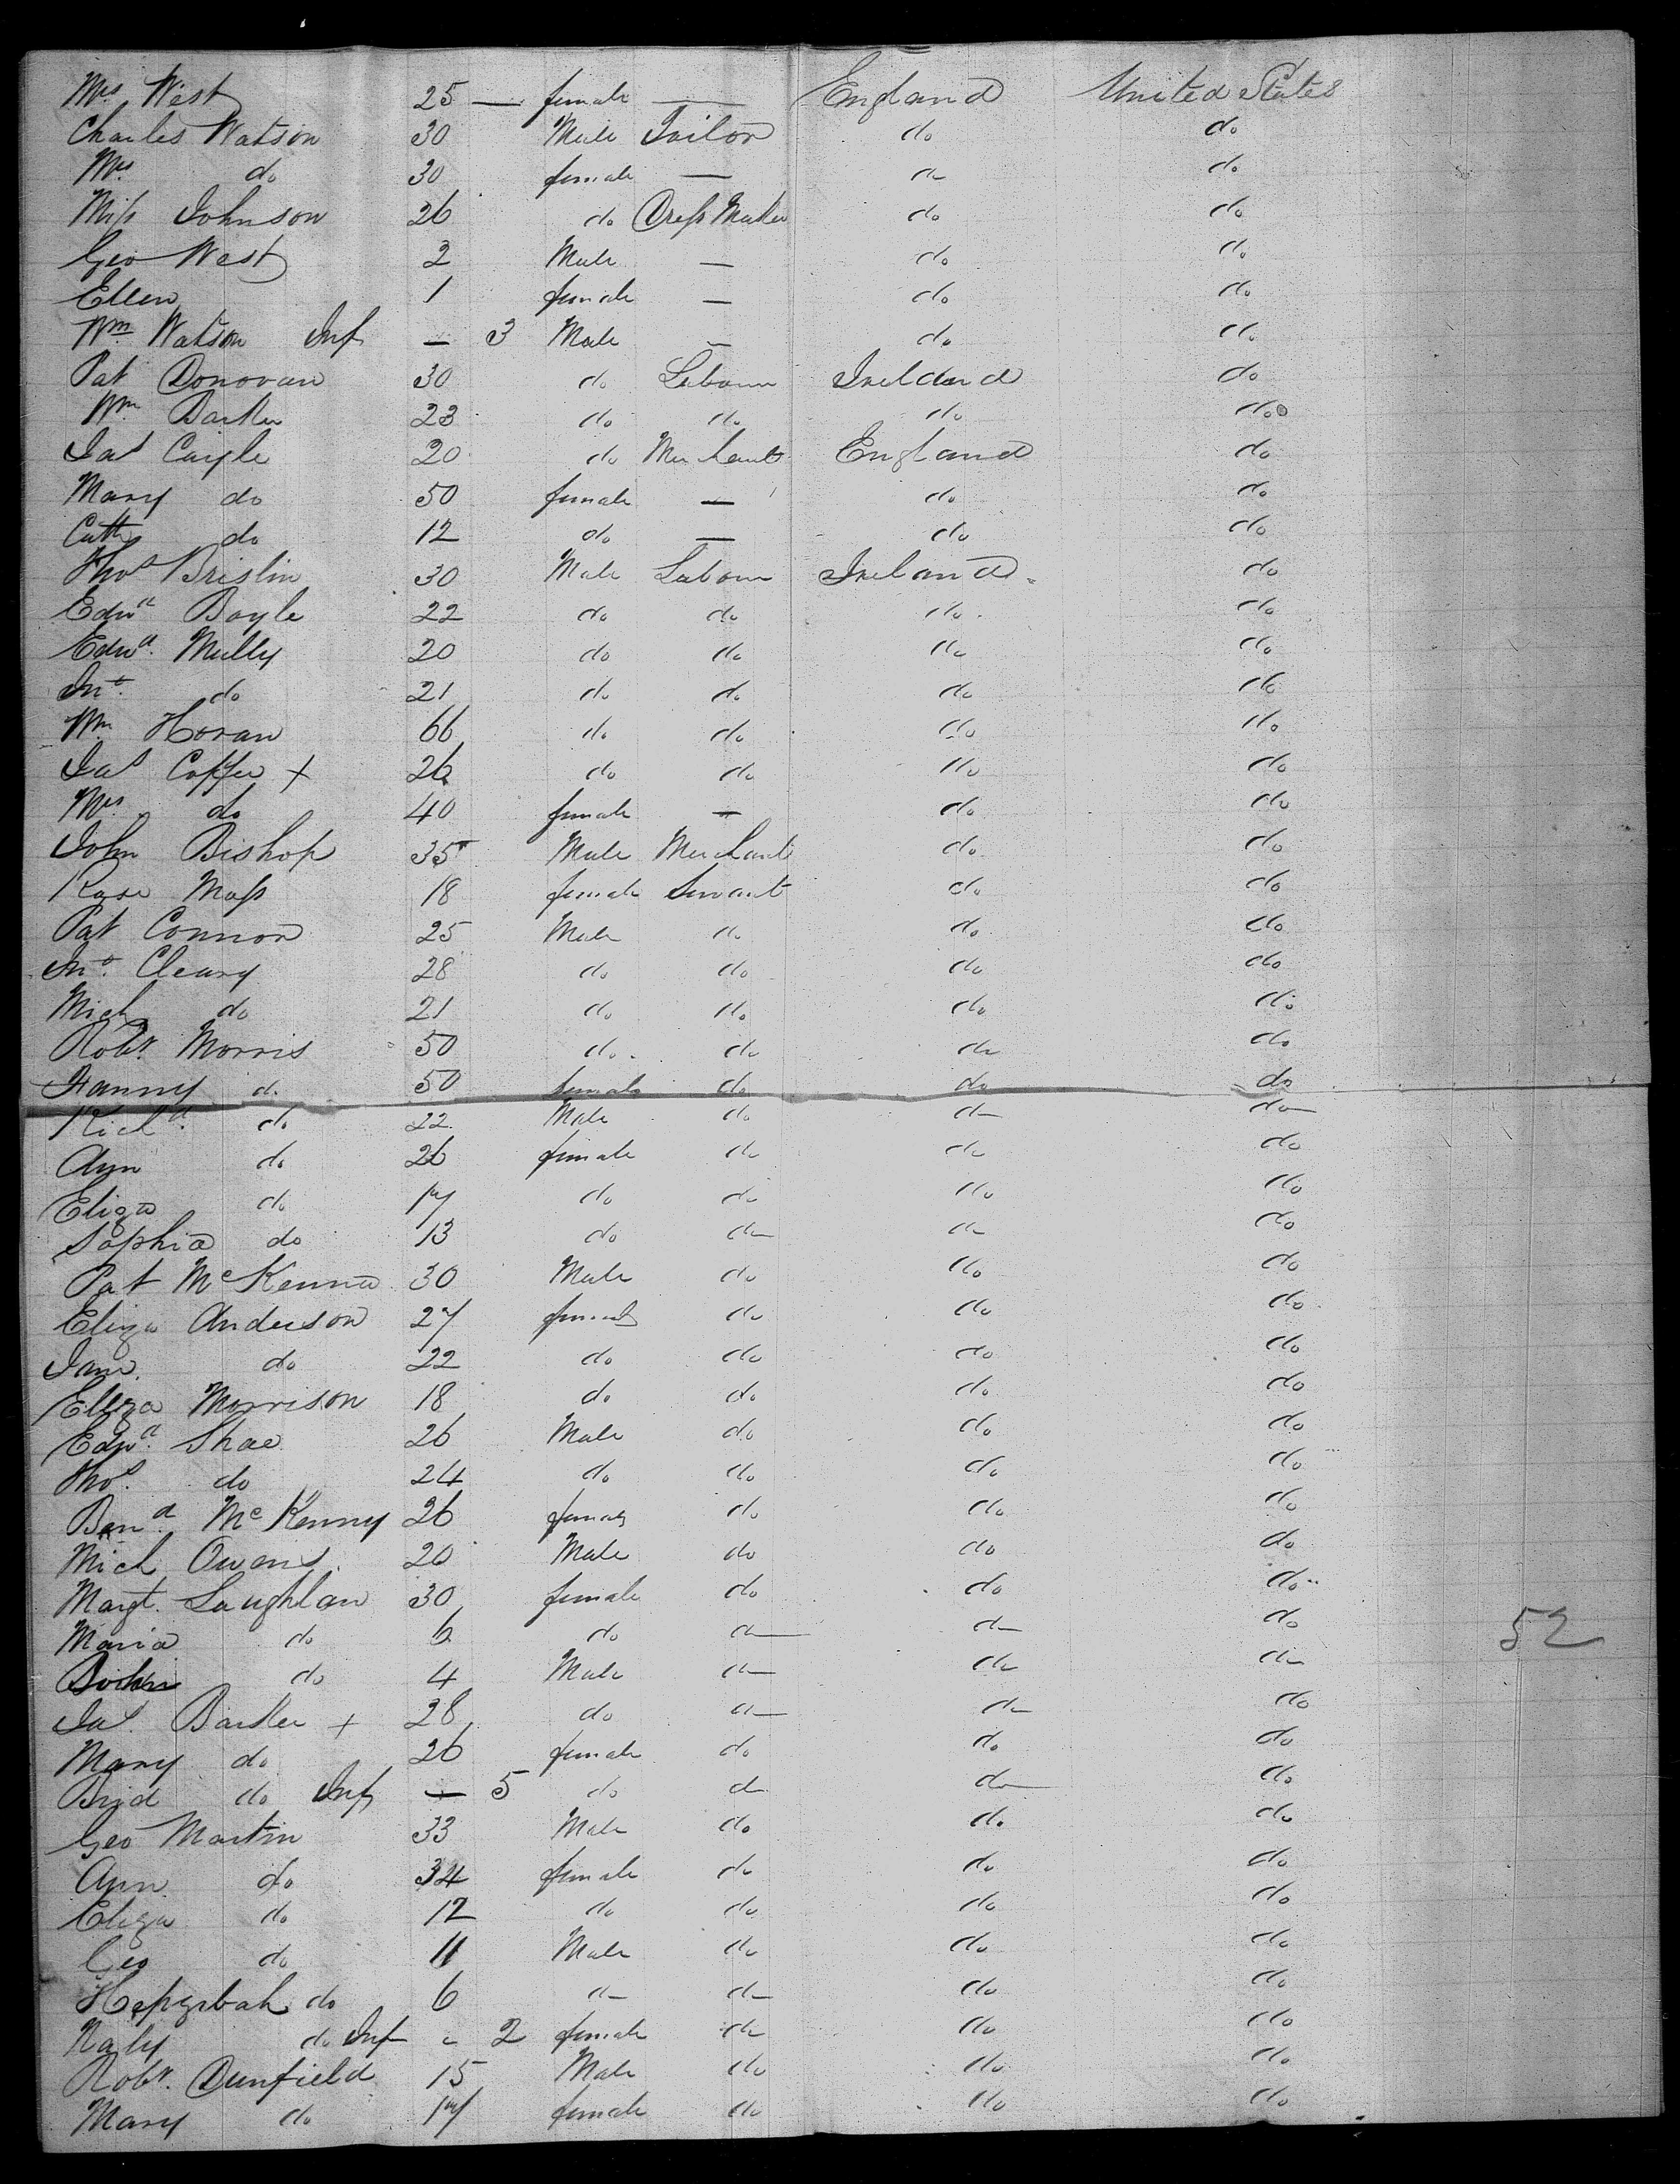 Mrs West 25 — female — England United States
Charles Watson 30 Male Tailor do do
Mrs do 30 female — do do
Miss Johnson 26 do Dress Maker do do
Geo West 2 Male — do do
Ellen 1 female — do do
Wm Watson Inf — 3 Male — do do
Pat Donovan 30 do Labour Ireland do
Wm Barker 23 do do do do
Jas Cargle 20 do Merchant England do
Mary do 50 female — do do
Cath do 12 do — do do
Thos Brislin 30 Male Labour Ireland do
Edwd Boyle 22 do do do do
Edwd. Mully 20 do do do do
Jno. do 21 do do do do
Wm Horan 66 do do do do
Jas Coffee + 26 do do do do
Mrs do 40 female — do do
John Bishop 35 Male Merchant do do
Rose Moss 18 female Servant do do
Pat Connor 25 Male do do do
Jno. Cleary 28 do do do do
Mich do 21 do do do do
Robt Morris 50 do do do do
Fanny do 50 female do do do
Richd. do 22 Male do do do
Ann do 26 female do do do
Eliza do 17 do do do do
Sophia do 13 do do do do
Pat McKenna 30 Male do do do
Eliza Anderson 27 female do do do
Jane do 22 do do do do
Eliza Morrison 18 do do do do
Edwd. Shae 26 Male do do do
Thos. do 24 do do do do
Bend. McKenny 26 female do do do
Mich Owens 20 Male do do do
Margt. Laughlan 30 female do do do
Maria do 6 do do do do 52
do 4 Male do do do
Jas. Barker + 28 do do do do
Mary do 26 female do do do
Brid do Inf — 5 do do do do
Geo Martin 33 Male do do do
Ann do 34 female do do do
Eliza do 12 do do do do
Geo do 11 Male do do do
Hepzibah do 6 do do do do
do Inf 2 female do do do
Robt. Dunfield 15 Male do do do
Mary do 17 female do do do